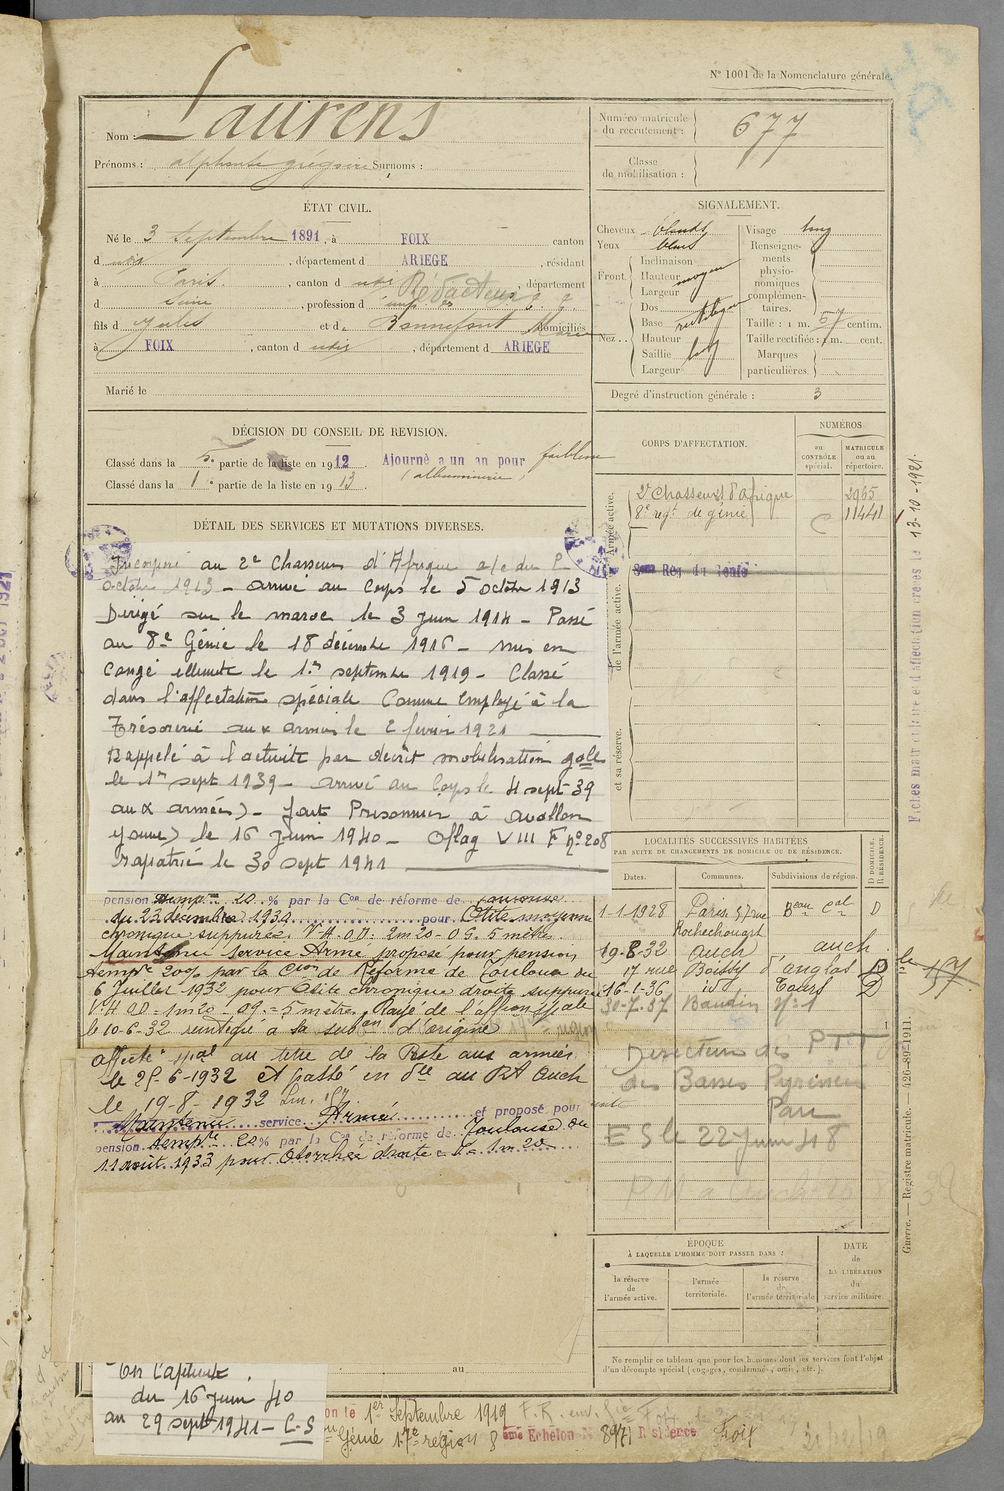 N° 1001 de la Nomenclature générale.
Nom : Laurens
Prénoms : alphonse grégoire Surnoms :
Numéro matricule du recrutement : 677
Classe de mobilisation :
ÉTAT CIVIL.
Né le 3 Septembre 1891, à FOIX canton
d udis, département d ARIEGE, résidant
à Paris, canton d udis, département
d Seine, profession d Rédacteur
fils d Jules et de Bonnefont Marie domiciliés
à FOIX, canton d udis, département d ARIEGE
Marié le
SIGNALEMENT.
Cheveux blonds
Yeux bleus
Front.
Inclinaison
Hauteur moyen
Largeur
Nez..
Dos
Base rectiligne
Hauteur
Saillie
Largeur
Visage long
Renseignements physionomiques complémentaires.
Taille : 1 m. 57 centim.
Taille rectifiée : 1 m. cent.
Marques particulières.
Degré d'instruction générale : 3
DÉCISION DU CONSEIL DE REVISION.
Classé dans la 5e partie de la liste en 1912 Ajourné a un an pour faiblesse
Classé dans la 1e partie de la liste en 1913. (albuminurie)
CORPS D'AFFECTATION.
NUMÉROS
au CONTRÔLE spécial.
MATRICULE ou au répertoire.
Armée active.
2e Chasseurs d'afrique 2965
8e regt de génie 11441
8me Reg du Génie
de l'armée active.
et sa réserve.
DÉTAIL DES SERVICES ET MUTATIONS DIVERSES.
Incorporé au 2e Chasseurs d'Afrique a/c du 2
octobre 1913 - arrivé au Corps le 5 octobre 1913
Dirigé sur le maroc le 3 juin 1914 - Passé
au 8e Génie le 18 décembre 1916 - mis en
Congé illimité le 1er septembre 1919 - Classé
dans l'affectation spéciale Comme employé à la
Trésorerie aux armées le 2 février 1921
Rappelé à l'activité par décret mobilisation gale
le 1er sept 1939 - arrivé au Corps le 4 sept 39
aux armées) - fait Prisonnier à avallon
yonne) le 16 juin 1940 - Oflag VIII F no 208
rapatrié le 30 sept 1941
pension temp. 20 % par la Con de réforme de Toulouse
du 22 décembre 1930 pour Otite moyenne
chronique suppurée. V.H. O.D: 2m20 - O.G. 5 mètres
Maintenu Service Armé proposé pour pension
tempre 20% par la Cion de Réforme de Toulouse du
6 Juillet 1932 pour Otite chronique droite suppurée
V.H OD = 1m20 - OG. = 5 mètres. Rayé de l'affion spéciale
le 10-6-32 réintégré à sa subon d'origine
affecté spal au titre de la Poste aux armées
le 25-6-1932 Et passé en dle au RA Auch
le 19-8-1932
Maintenu service Armé et proposé pour
pension tempre 20 % par la Con de réforme de Toulouse du
11 août 1933 pour Otorrhée droite 1m20
LOCALITÉS SUCCESSIVES HABITÉES
PAR SUITE DE CHANGEMENTS DE DOMICILE OU DE RÉSIDENCE.
Dates. Communes. Subdivisions de région. D DOMICILE. R RÉSIDENCE.
1-1-1928 Paris 57 rue Rochechouart Beau Cal D
19-8-32 Auch auch
17 rue Boissy d'anglas D
16-1-36 id Tours D
30-7-37 Baudin no 1
Directeur des PTT
des Basses Pyrénées
Pau
ES le 22 Juin 48
ÉPOQUE
À LAQUELLE L'HOMME DOIT PASSER DANS :
la réserve de l'armée active.
l'armée territoriale.
la réserve de l'armée territoriale
DATE de LA LIBÉRATION du service militaire.
Ne remplir ce tableau que pour les hommes dont les services font l'objet
d'un décompte spécial (engagés, condamnés, omis, etc.).
Guerre. — Registre matricule. — 426-89-1911.
13-10-1921.
au
En Captivité
du 16 juin 40
au 29 septbre 1941 - C-S
on le 1er Septembre 1919
Génie 17e région 8eme Echelon N 8971 Résidence Foix